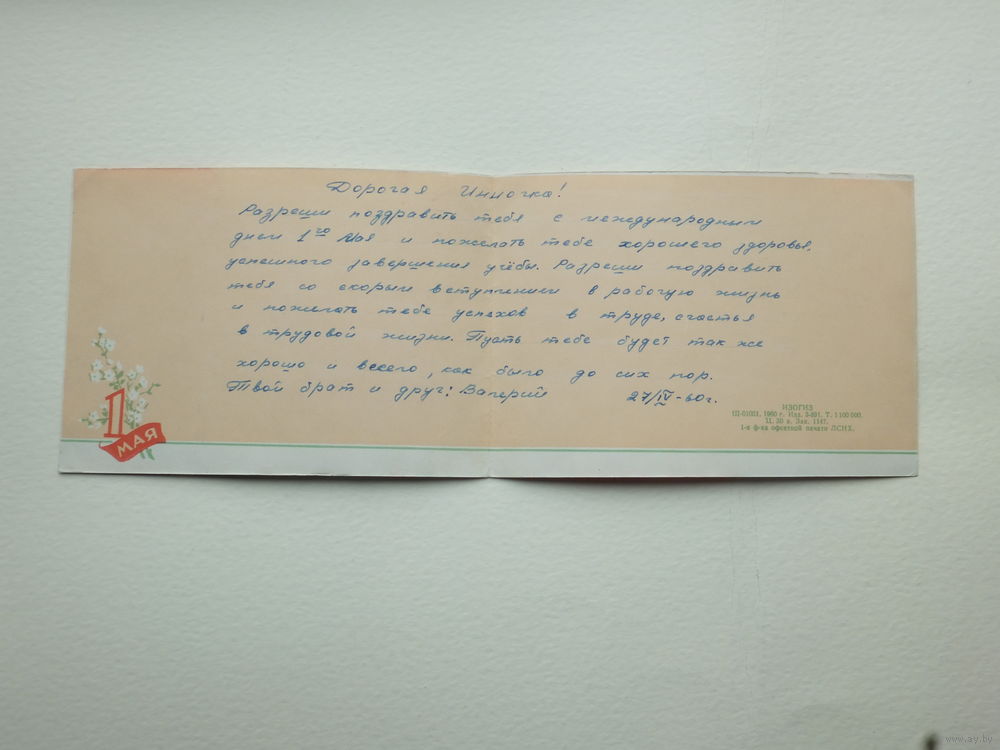 Дорогая Инночка!
Разреши поздравить тебя с международным
днем 1го Мая и пожелать тебе хорошего здоровья,
успешного завершения учёбы. Разреши поздравить
тебя со скорым вступлением в рабочую жизнь
и пожелать тебе успехов в труде, счастья
в трудовой жизни. Пусть тебе будет так же
хорошо и весело, как было до сих пор.
Твой брат и друг: Валерий 27/IV-60г.
1
МАЯ
ИЗОГИЗ
Ш-01031, 1960 г. Изд. 3-891. Т. 1 100 000.
Ц. 30 к. Зак. 1147.
1-я ф-ка офсетной печати ЛСНХ.
www.ay.by